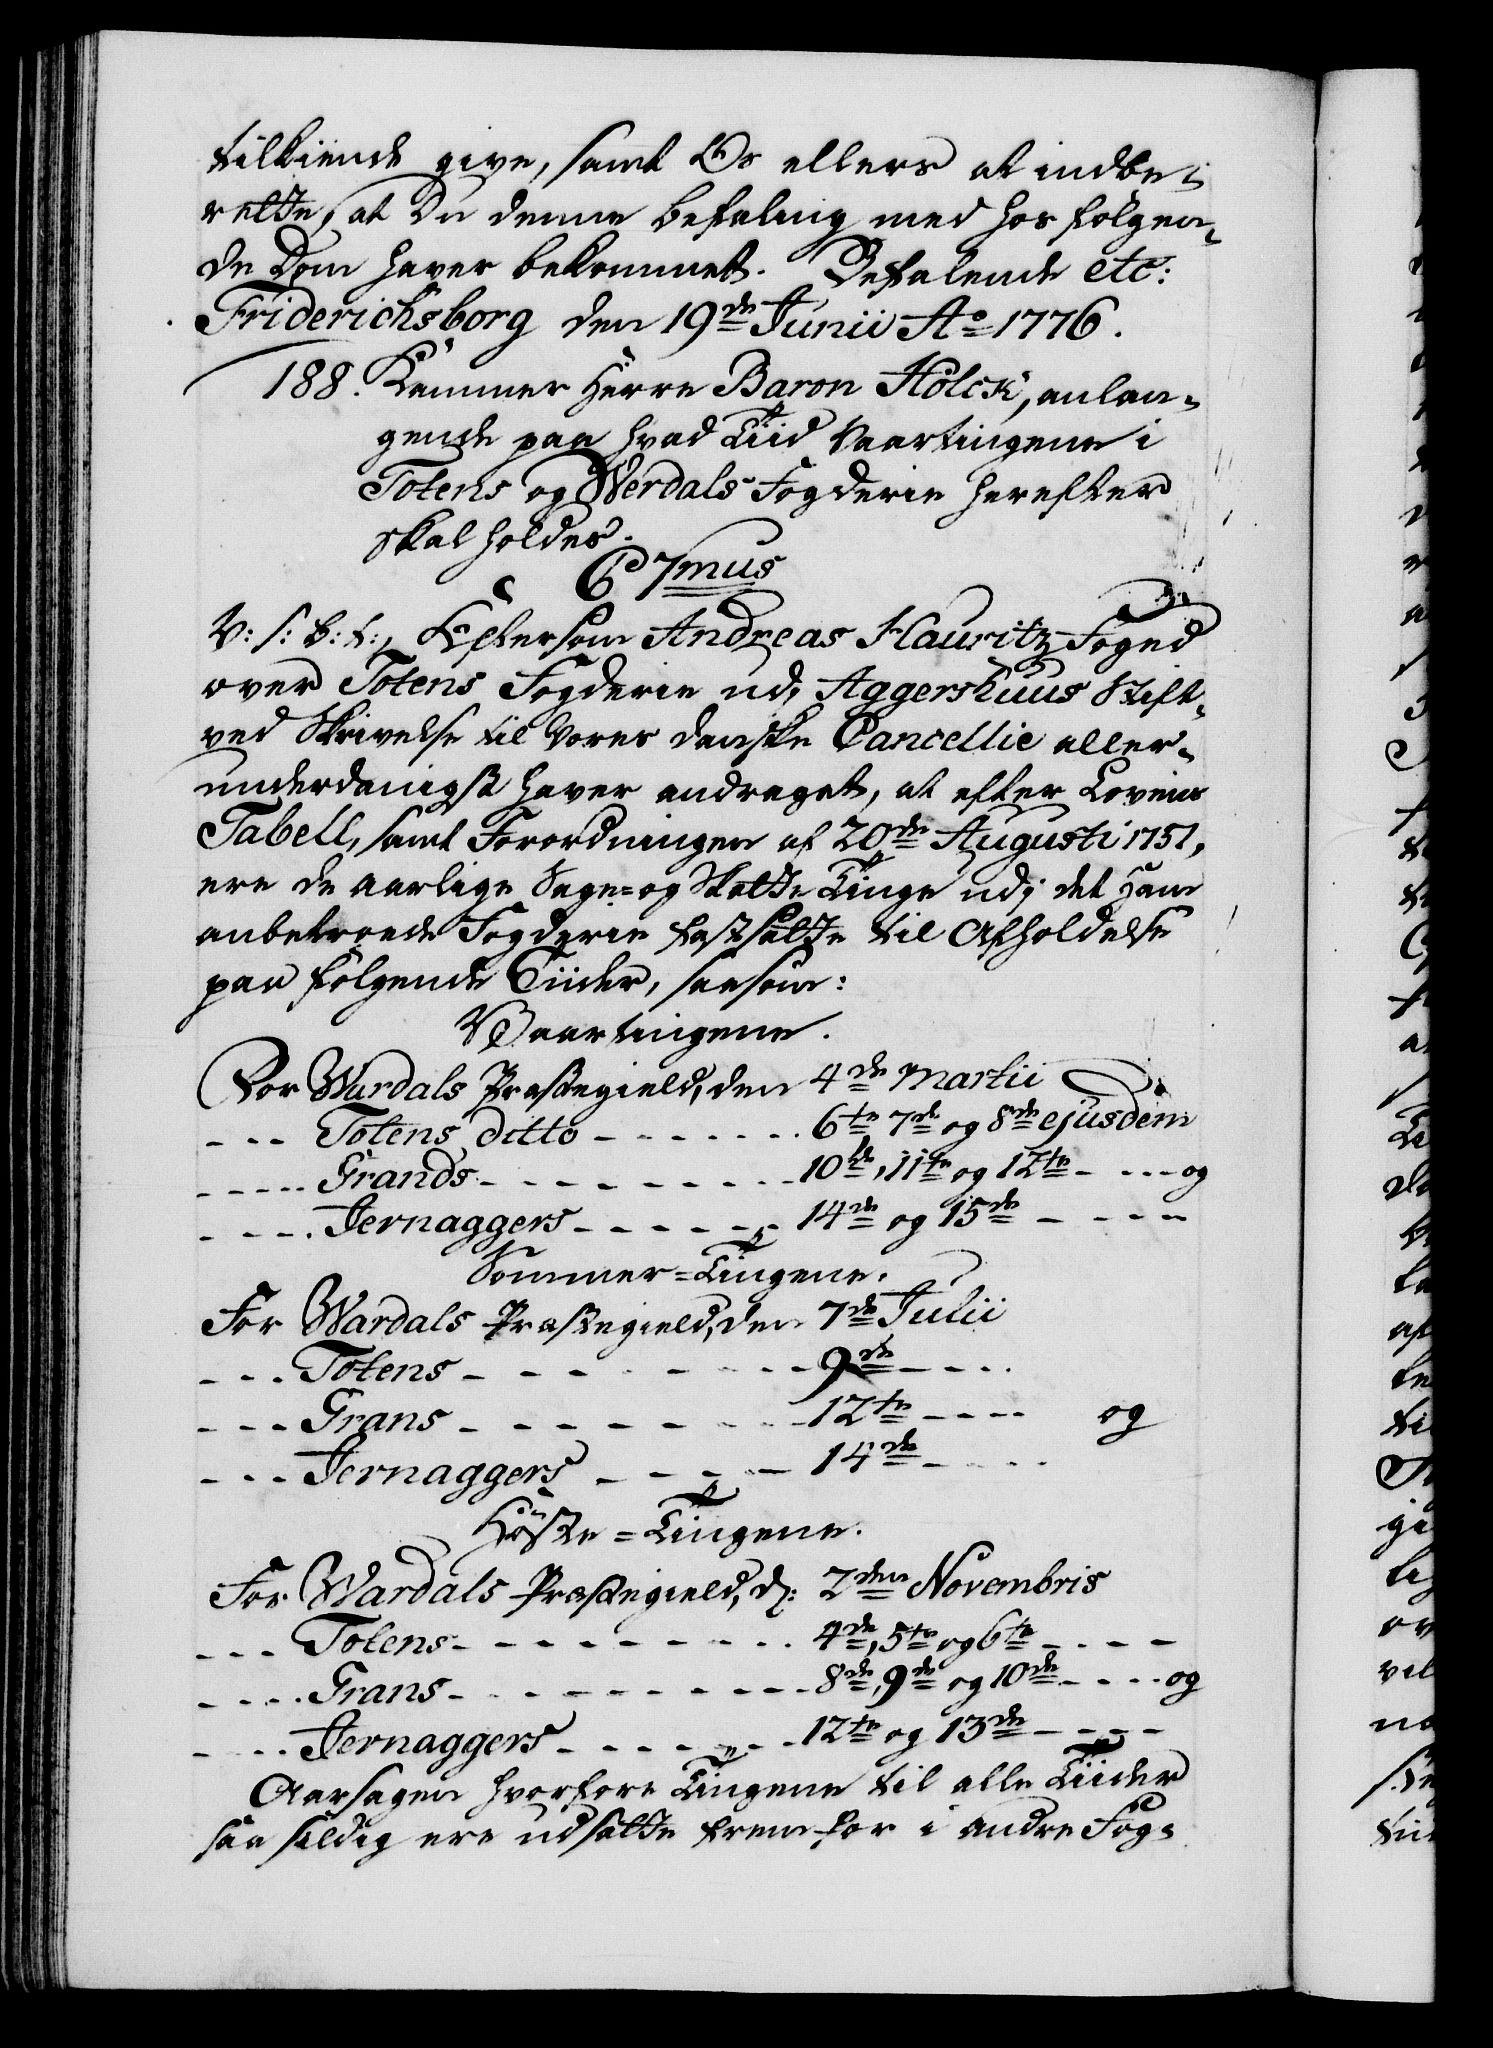 tilkiende give, samt Os ellers at indbe-
rette, at Du denne befaling med hos følgen-
de Dom haver bekommet. Befalende etc:
Friderichsborg den 19de Junii Ao 1776.
188. Kammer Herre Baron Holck, anlan-
gende paa hvad Tiid Vaartingene i
Totens og Werdals Fogderie herefter
skal holdes.
C 7mus
V: s: b: t:, Eftersom Andreas Hauritz Foged
over Totens Fogderie udi Aggershuus Stift,
ved Skrivelse til Vores danske Cancellie aller-
underdanigst haver andraget, at efter Lovens
Tabell, samt Forordningen af 20de Augusti 1751,
ere de aarlige Sage- og Skatte Tinge udi det ham
anbetroede Fogderie fastsatte til Afholdelse
paa følgende Tiider, saasom:
Vaartingene.
For Wardals Præstegield, den 4de Martii
--- Totens ditto -------- 6te 7de og 8de ejusdem
----- Grands ---------- 10de, 11te og 12te ---- og
----. Jernaggers ------ 14de og 15de -----
Sommer-Tingene.
For Wardals Præstegield, den 7de Julii
--- Totens --------- 9de ----
--- Grans --------- 12te ---- og
--- Jernaggers ----- 14de -----
Høste-Tingene.
For Wardals Præstegield, d: 2den Novembris
--- Totens --------- 4de, 5te og 6te ----
---- Grans ----------- 8de, 9de og 10de ---- og
---- Jernaggers ------- 12te og 13de ----
Aarsagen hvorfore Tingene til alle Tiider
saa sildig ere udsatte frem for i andre Fog-